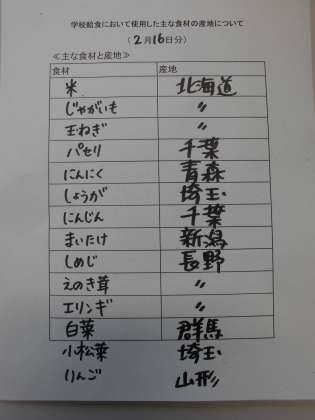 学校給食において使用した主な食材の産地について
(2月16日分)
≪主な食材と産地≫
食材 産地
米 北海道
じゃがいも 〃
玉ねぎ 〃
パセリ 千葉
にんにく 青森
しょうが 埼玉
にんじん 千葉
まいたけ 新潟
しめじ 長野
えのき茸 〃
エリンギ 〃
白菜 群馬
小松菜 埼玉
りんご 山形